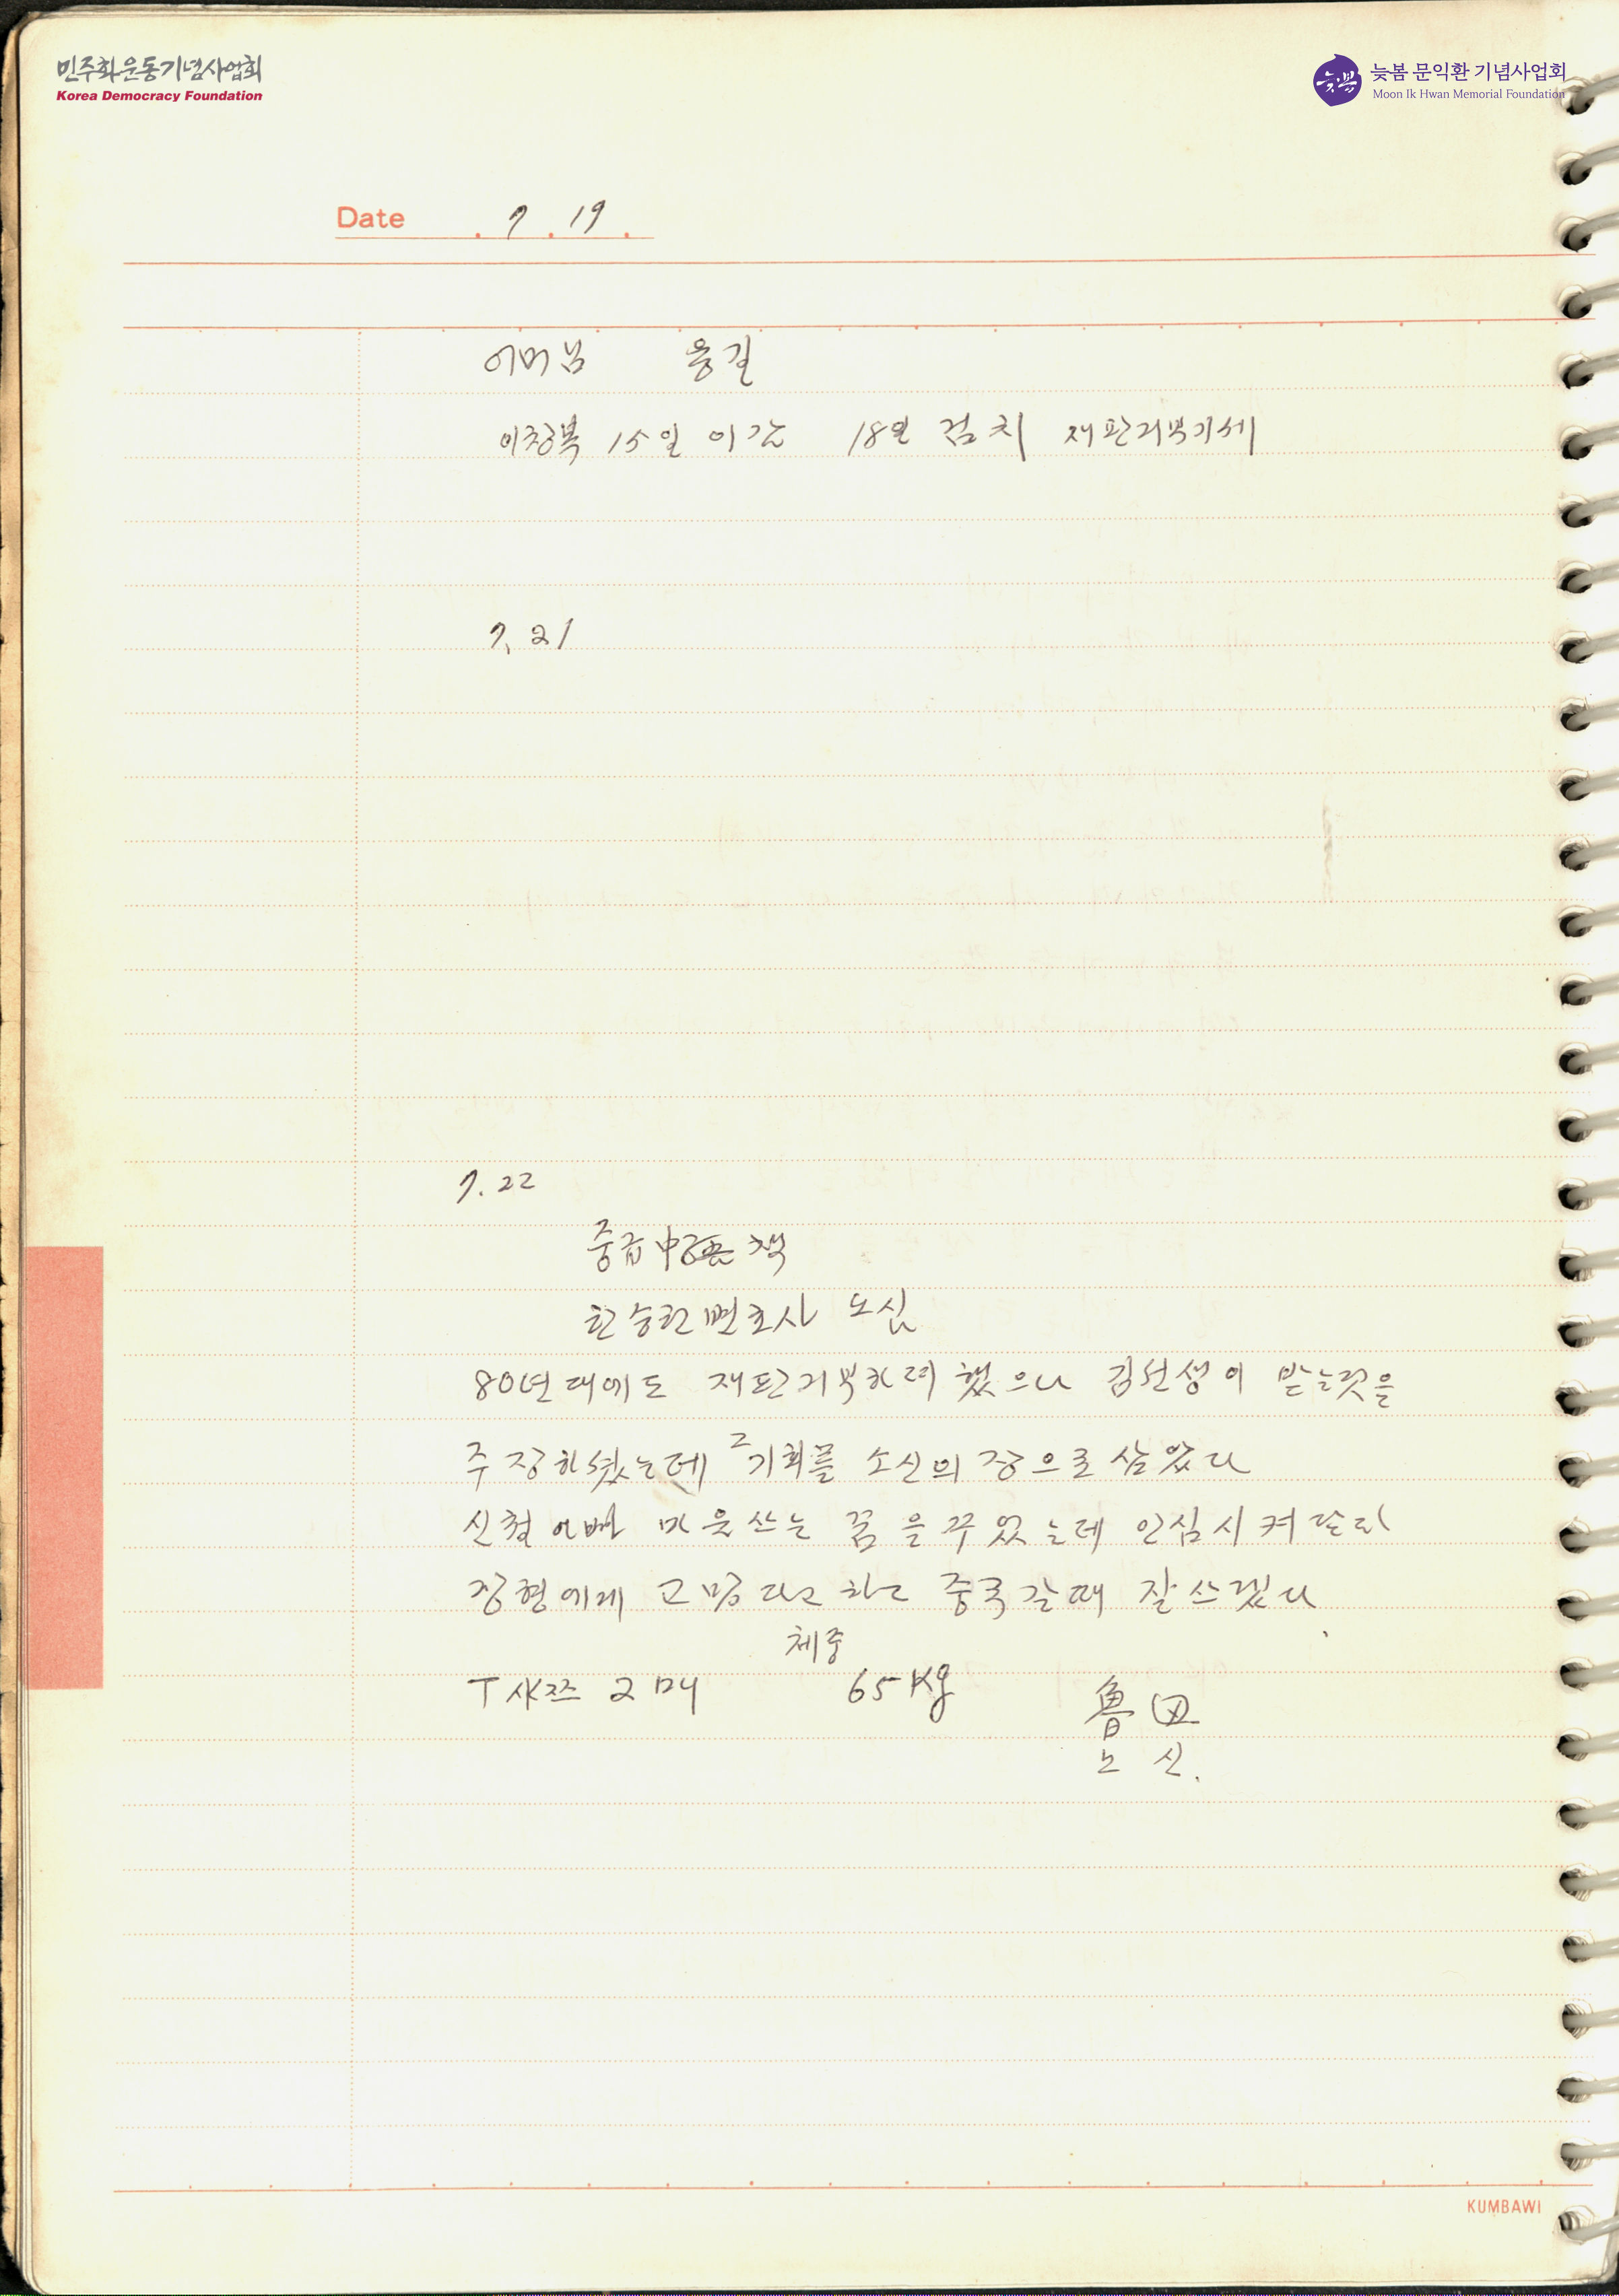 민주화운동기념사업회
Korea Democracy Foundation
늦봄
늦봄 문익환 기념사업회
Moon Ik Hwan Memorial Foundation
Date . 7 . 19 .
어머님 용길
이창복 15일 이감 18일 검치 재판거부기세
7. 21
7. 22
중급中国語책
한승헌변호사 노심
80년대에도 재판거부하려 했으나 김선생이 받는것을
주장하셨는데 그 기회를 소신의 장으로 삼았다
신철아빠 마음쓰는 꿈을 꾸었는데 안심시켜달라
장형에게 고맙다고 하고 중국갈때 잘 쓰겠다.
체중
T샤쯔 2매 65Kg
魯迅
노신.
KUMBAWI